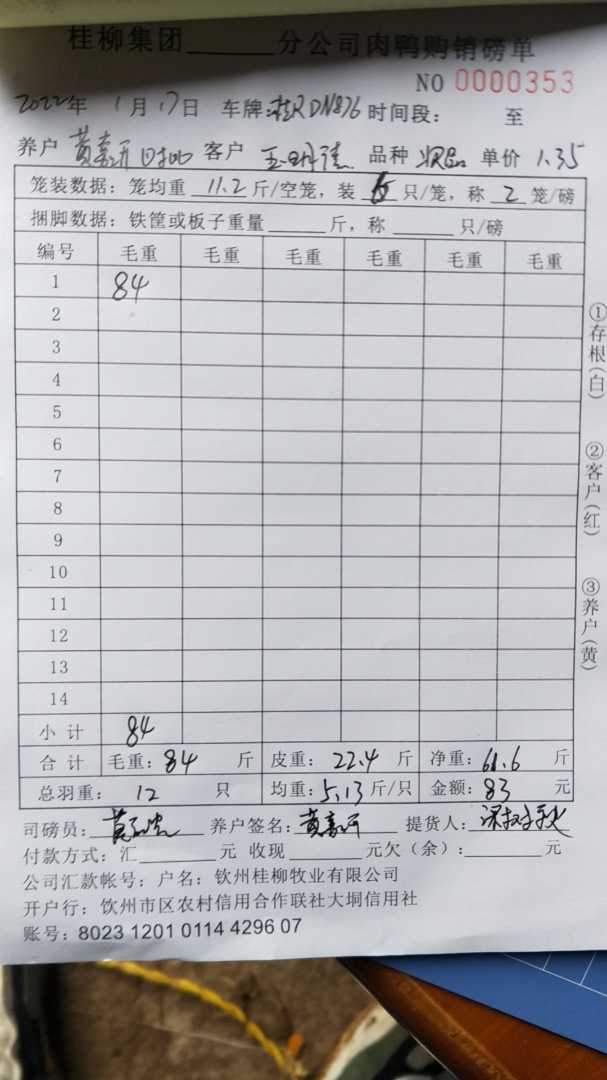 桂柳集团______分公司肉鸭购销磅单
NO 0000353
2022年 1月17日 车牌:桂RDN876 时间段: 至
养户 黄嘉 客户 品种 单价 1.35
笼装数据:笼均重 11.2 斤/空笼,装 6 只/笼,称 2 笼/磅
捆脚数据:铁筐或板子重量______斤,称______只/磅
编号 毛重 毛重 毛重 毛重 毛重 毛重
1 84
2
3
4
5
6
7
8
9
10
11
12
13
14
小计 84
合计 毛重:84 斤 皮重:22.4 斤 净重:61.6 斤
总羽重: 12 只 均重:5.13斤/只 金额:83 元
司磅员: 养户签名:黄嘉 提货人:
付款方式:汇______元 收现______元欠(余):______元
公司汇款帐号:户名:钦州桂柳牧业有限公司
开户行:钦州市区农村信用合作联社大垌信用社
账号:8023 1201 0114 4296 07
①存根(白)
②客户(红)
③养户(黄)